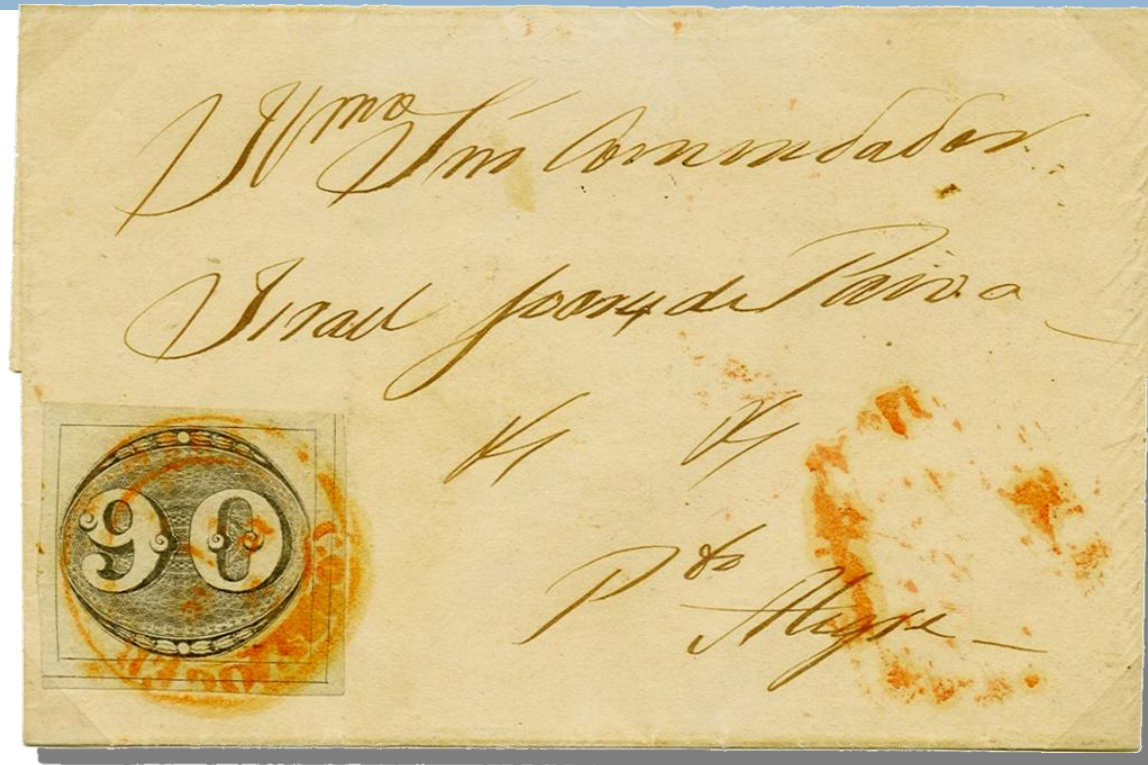 Illmo Snr Commendador
Israel Soares de Paiva
Pto Alegre
90